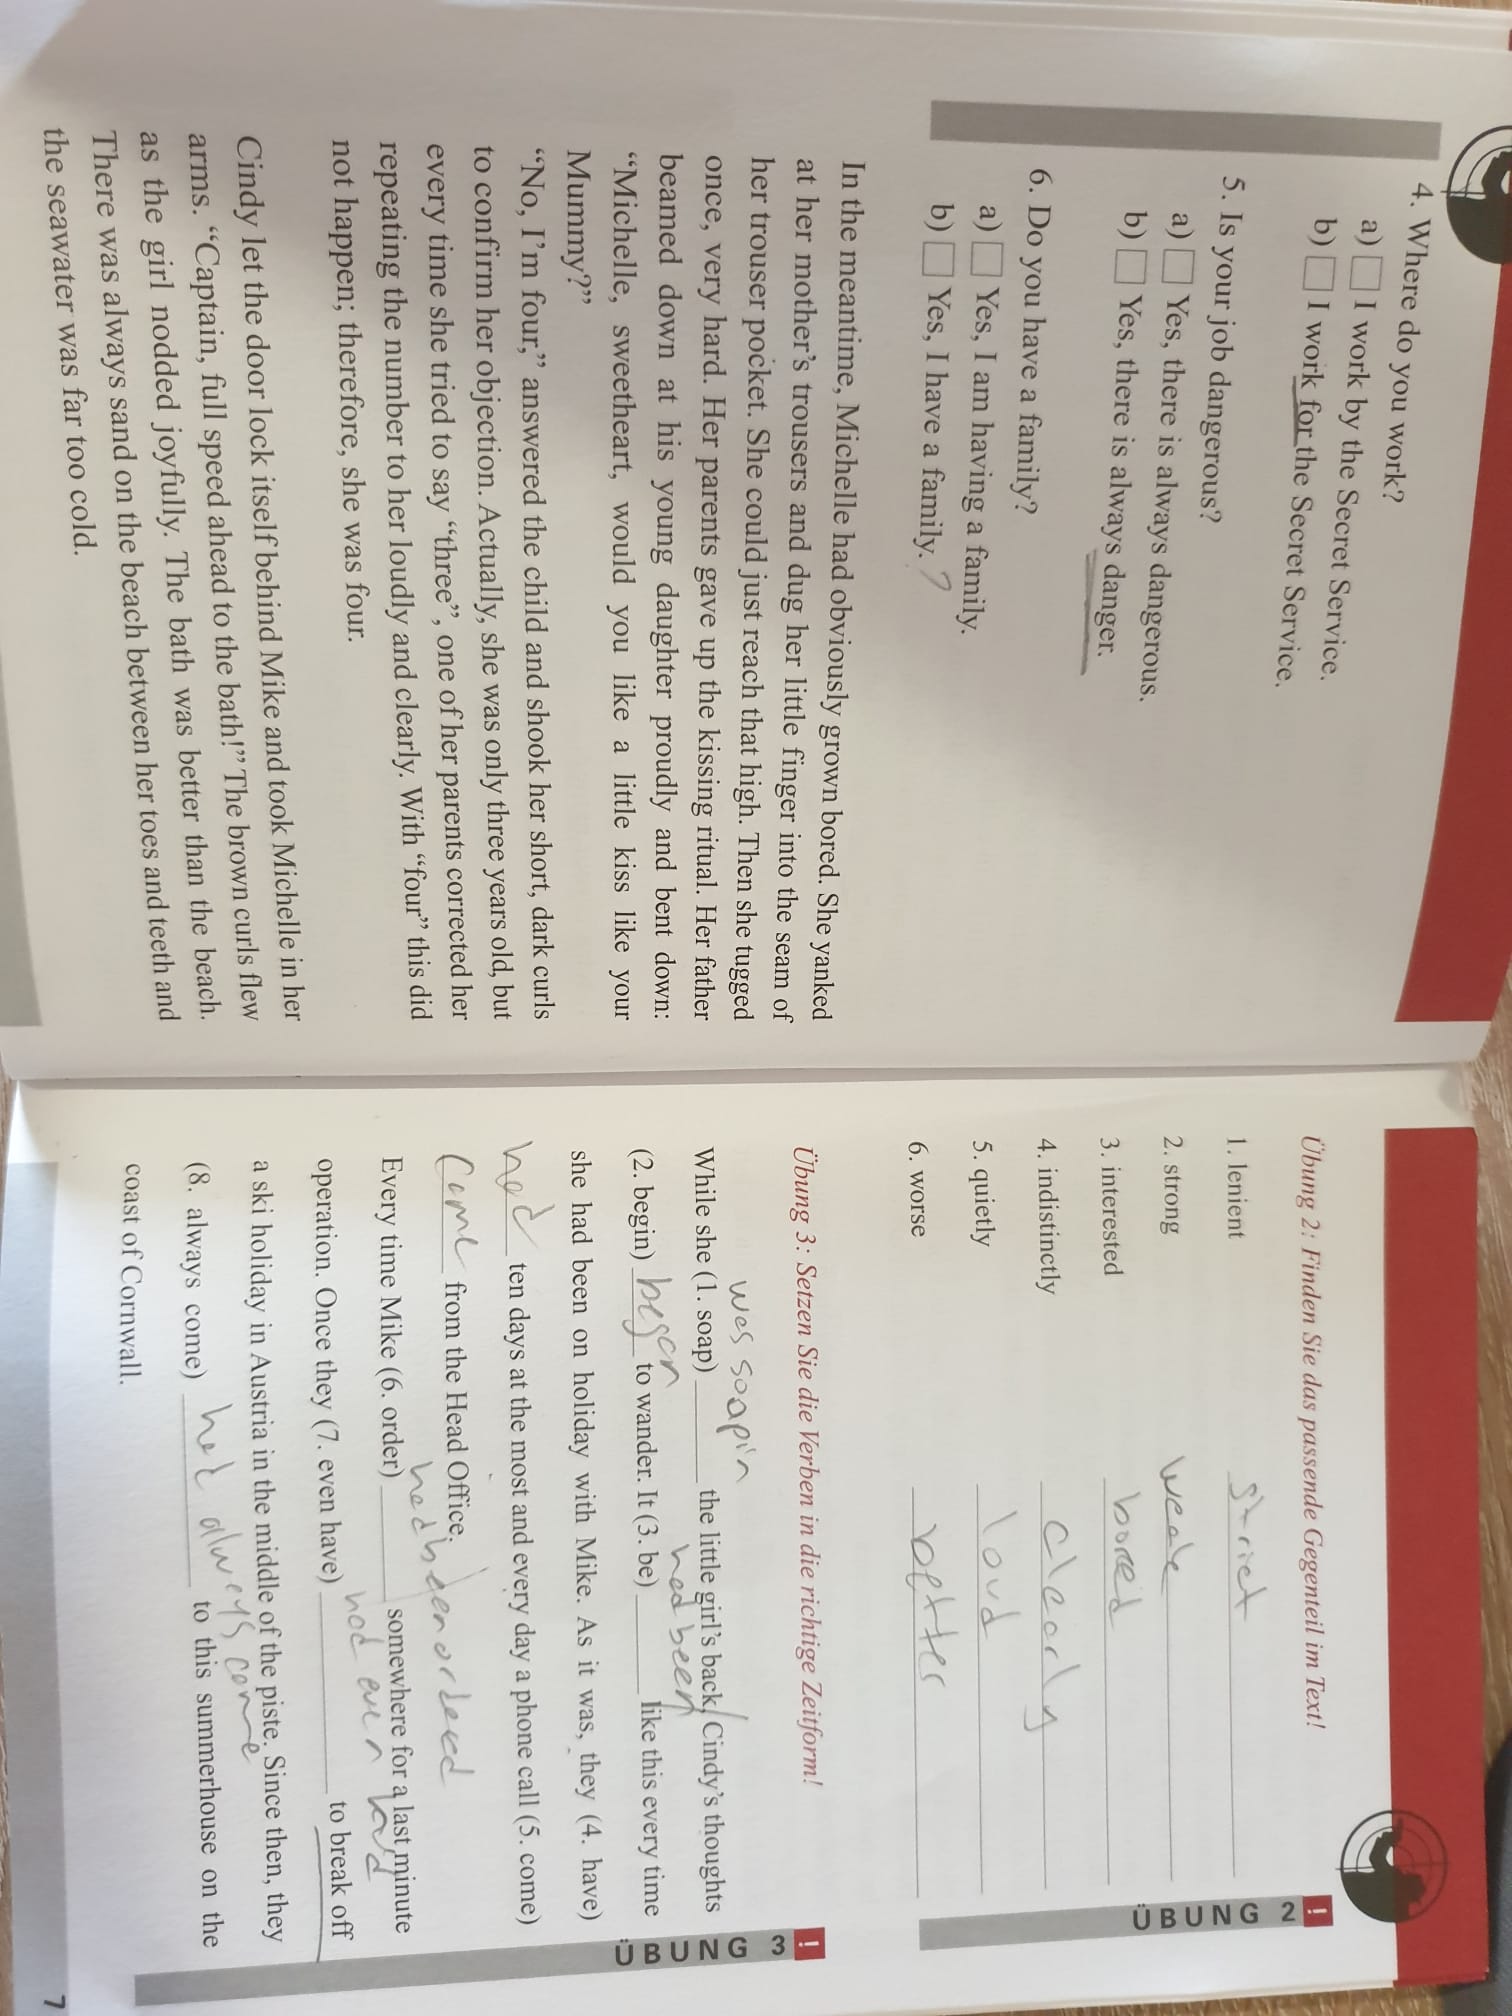 4. Where do you work?
a) I work by the Secret Service.
b) I work for the Secret Service.
5. Is your job dangerous?
a) Yes, there is always dangerous.
b) Yes, there is always danger.
6. Do you have a family?
a) Yes, I am having a family.
b) Yes, I have a family. ?
In the meantime, Michelle had obviously grown bored. She yanked
at her mother’s trousers and dug her little finger into the seam of
her trouser pocket. She could just reach that high. Then she tugged
once, very hard. Her parents gave up the kissing ritual. Her father
beamed down at his young daughter proudly and bent down:
“Michelle, sweetheart, would you like a little kiss like your
Mummy?”
“No, I’m four,” answered the child and shook her short, dark curls
to confirm her objection. Actually, she was only three years old, but
every time she tried to say “three”, one of her parents corrected her
repeating the number to her loudly and clearly. With “four” this did
not happen; therefore, she was four.
Cindy let the door lock itself behind Mike and took Michelle in her
arms. “Captain, full speed ahead to the bath!” The brown curls flew
as the girl nodded joyfully. The bath was better than the beach.
There was always sand on the beach between her toes and teeth and
the seawater was far too cold.
Übung 2: Finden Sie das passende Gegenteil im Text!
1. lenient strict
2. strong weak
3. interested bored
4. indistinctly clearly
5. quietly loud
6. worse better
ÜBUNG 2 !
Übung 3: Setzen Sie die Verben in die richtige Zeitform!
was soapin
While she (1. soap) the little girl’s back, Cindy’s thoughts
had been
(2. begin) began to wander. It (3. be) like this every time
she had been on holiday with Mike. As it was, they (4. have)
had ten days at the most and every day a phone call (5. come)
came from the Head Office.
had been ordered
Every time Mike (6. order) somewhere for a last minute
had even had
operation. Once they (7. even have) to break off
a ski holiday in Austria in the middle of the piste. Since then, they
had always come
(8. always come) to this summerhouse on the
coast of Cornwall.
ÜBUNG 3 !
7